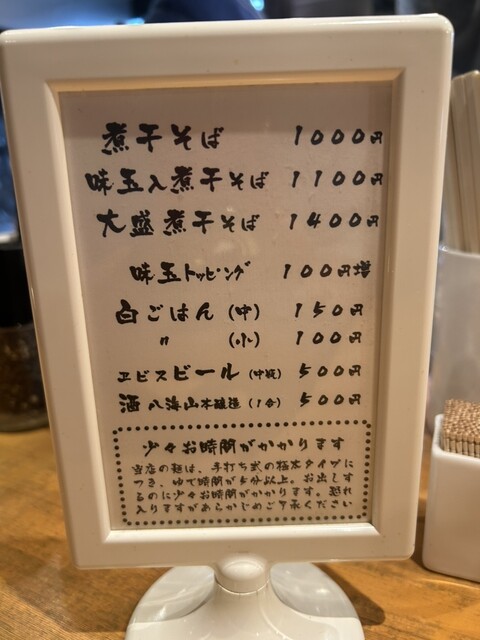 煮干そば 1000円
味玉入煮干そば 1100円
大盛煮干そば 1400円
味玉トッピング 100円増
白ごはん (中) 150円
〃 (小) 100円
ヱビスビール (中瓶) 500円
酒 八海山本醸造 (1合) 500円
少々お時間がかかります
当店の麺は、手打ち式の極太タイプに
つき、ゆで時間が5分以上。お出しす
るのに少々お時間がかかります。恐れ
入りますがあらかじめご了承ください